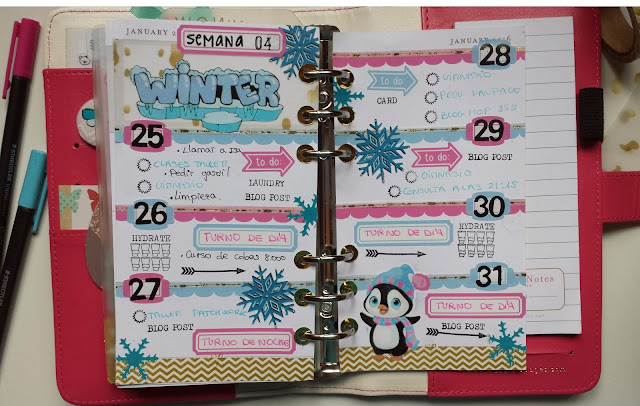 JANUARY 2
SEMANA 04
WINTER
25
• Llamar a Isa
CLASES TALLER
• Pedir gasoil
GIMNASIO
• Limpieza
to do:
LAUNDRY
BLOG POST
26
HYDRATE
TURNO DE DÍA
• Curso de cobas 8000
27
TALLER PATCHWORK
BLOG POST
TURNO DE NOCHE
JANUARY
28
to do:
CARD
GIMNASIO
BLOG HOP
29
to do:
BLOG POST
GIMNASIO
CONSULTA A LAS 21:15
30
HYDRATE
TURNO DE DÍA
31
TURNO DE DÍA
BLOG POST
Notes